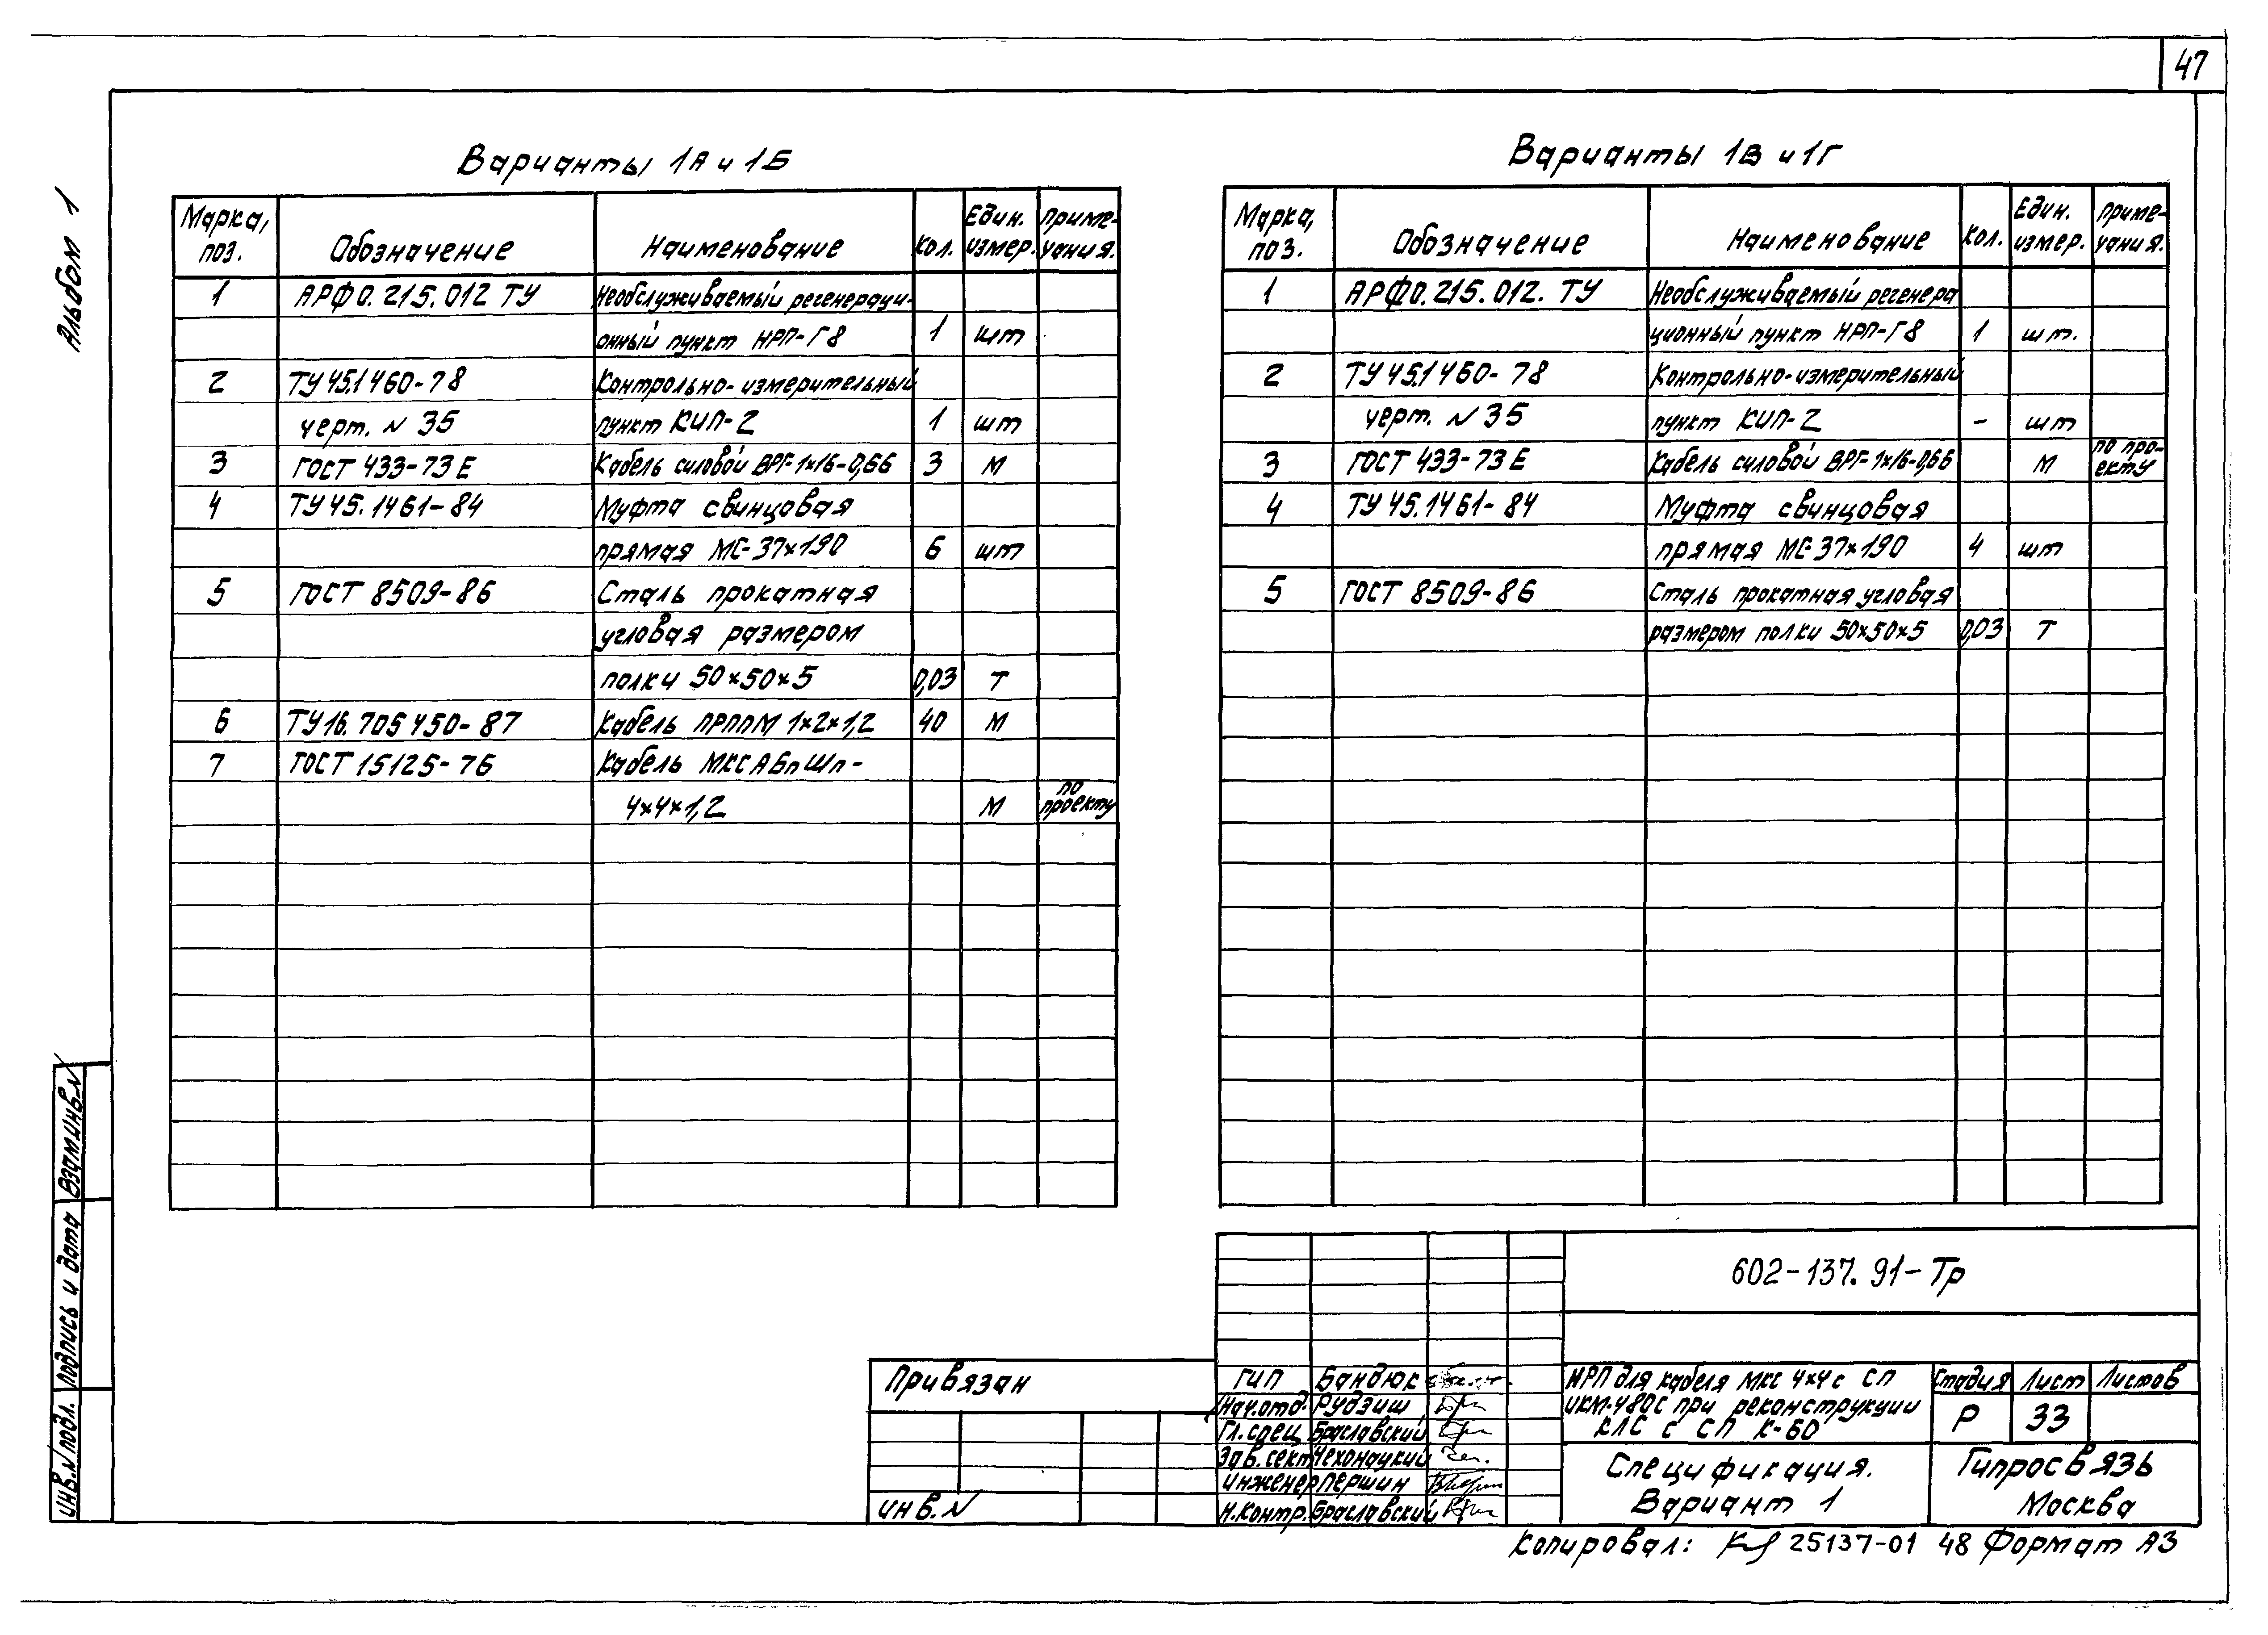 47
Альбом 1
Варианты 1А и 1Б
Марка, поз. Обозначение Наименование Кол. Един. измер. Приме-чания.
1 АРФ0.215.012 ТУ Необслуживаемый регенераци-
онный пункт НРП-Г8 1 шт
2 ТУ45.1460-78 Контрольно-измерительный
черт. N 35 пункт КИП-2 1 шт
3 ГОСТ 433-73Е Кабель силовой ВРГ-1х16-0,66 3 М
4 ТУ45.1461-84 Муфта свинцовая
прямая МС-37х190 6 шт
5 ГОСТ 8509-86 Сталь прокатная
угловая размером
полки 50х50х5 0,03 Т
6 ТУ16.705450-87 Кабель ПРППМ 1х2х1,2 40 М
7 ГОСТ 15125-76 Кабель МКСАБпШп-
4х4х1,2 М по проекту
Варианты 1В и 1Г
Марка, поз. Обозначение Наименование Кол. Един. измер. Приме-чания.
1 АРФ0.215.012. ТУ Необслуживаемый регенера
ционный пункт НРП-Г8 1 шт.
2 ТУ45.1460-78 Контрольно-измерительный
черт. N 35 пункт КИП-2 - шт
3 ГОСТ 433-73Е Кабель силовой ВРГ-1х16-0,66 М по про-екту
4 ТУ45.1461-84 Муфта свинцовая
прямая МС-37х190 4 шт
5 ГОСТ 8509-86 Сталь прокатная угловая
размером полки 50х50х5 0,03 Т
Взам инв. N
Подпись и дата
Инв. N подл.
Привязан
Инв. N
602-137.91-Тр
ГИП Бандюк
Нач.отд. Рудзиш
Гл.спец Браславский
Зав.сект Чехонацкий
Инженер Першин
Н.контр. Браславский
НРП для кабеля МКС 4х4 с СП
ИКМ-480С при реконструкции
КЛС с СП К-60
Стадия Лист Листов
Р 33
Спецификация.
Вариант 1
Гипросвязь
Москва
Копировал: 25137-01 48 Формат А3